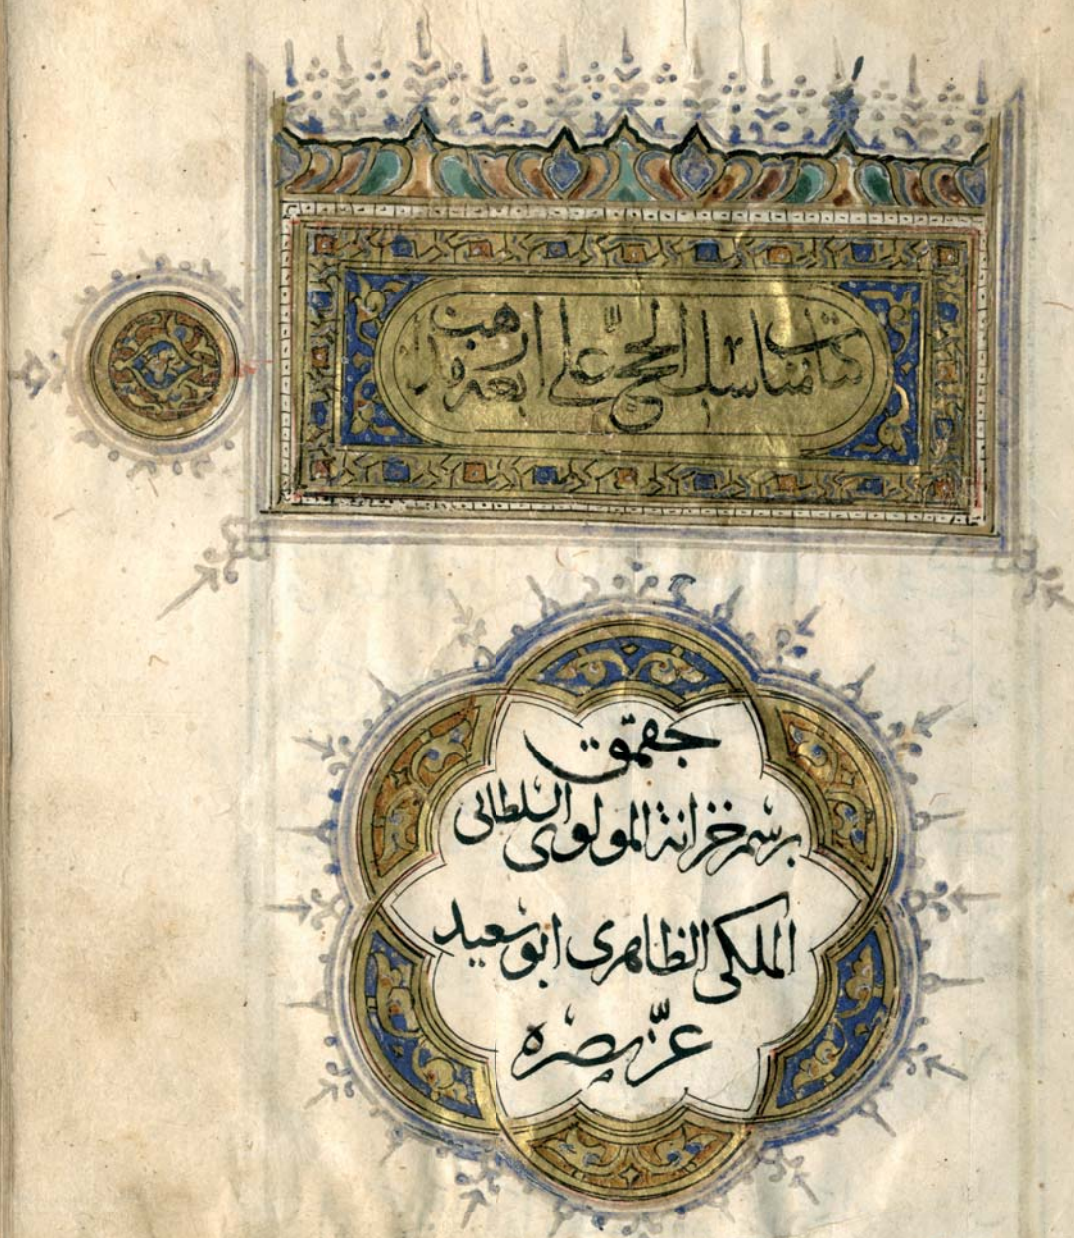 كتاب مناسك الحج على اربعة مذاهب
جقمق
برسم خزانة المولوى السلطانى
الملكى الظاهرى ابو سعيد
عزّ نصره